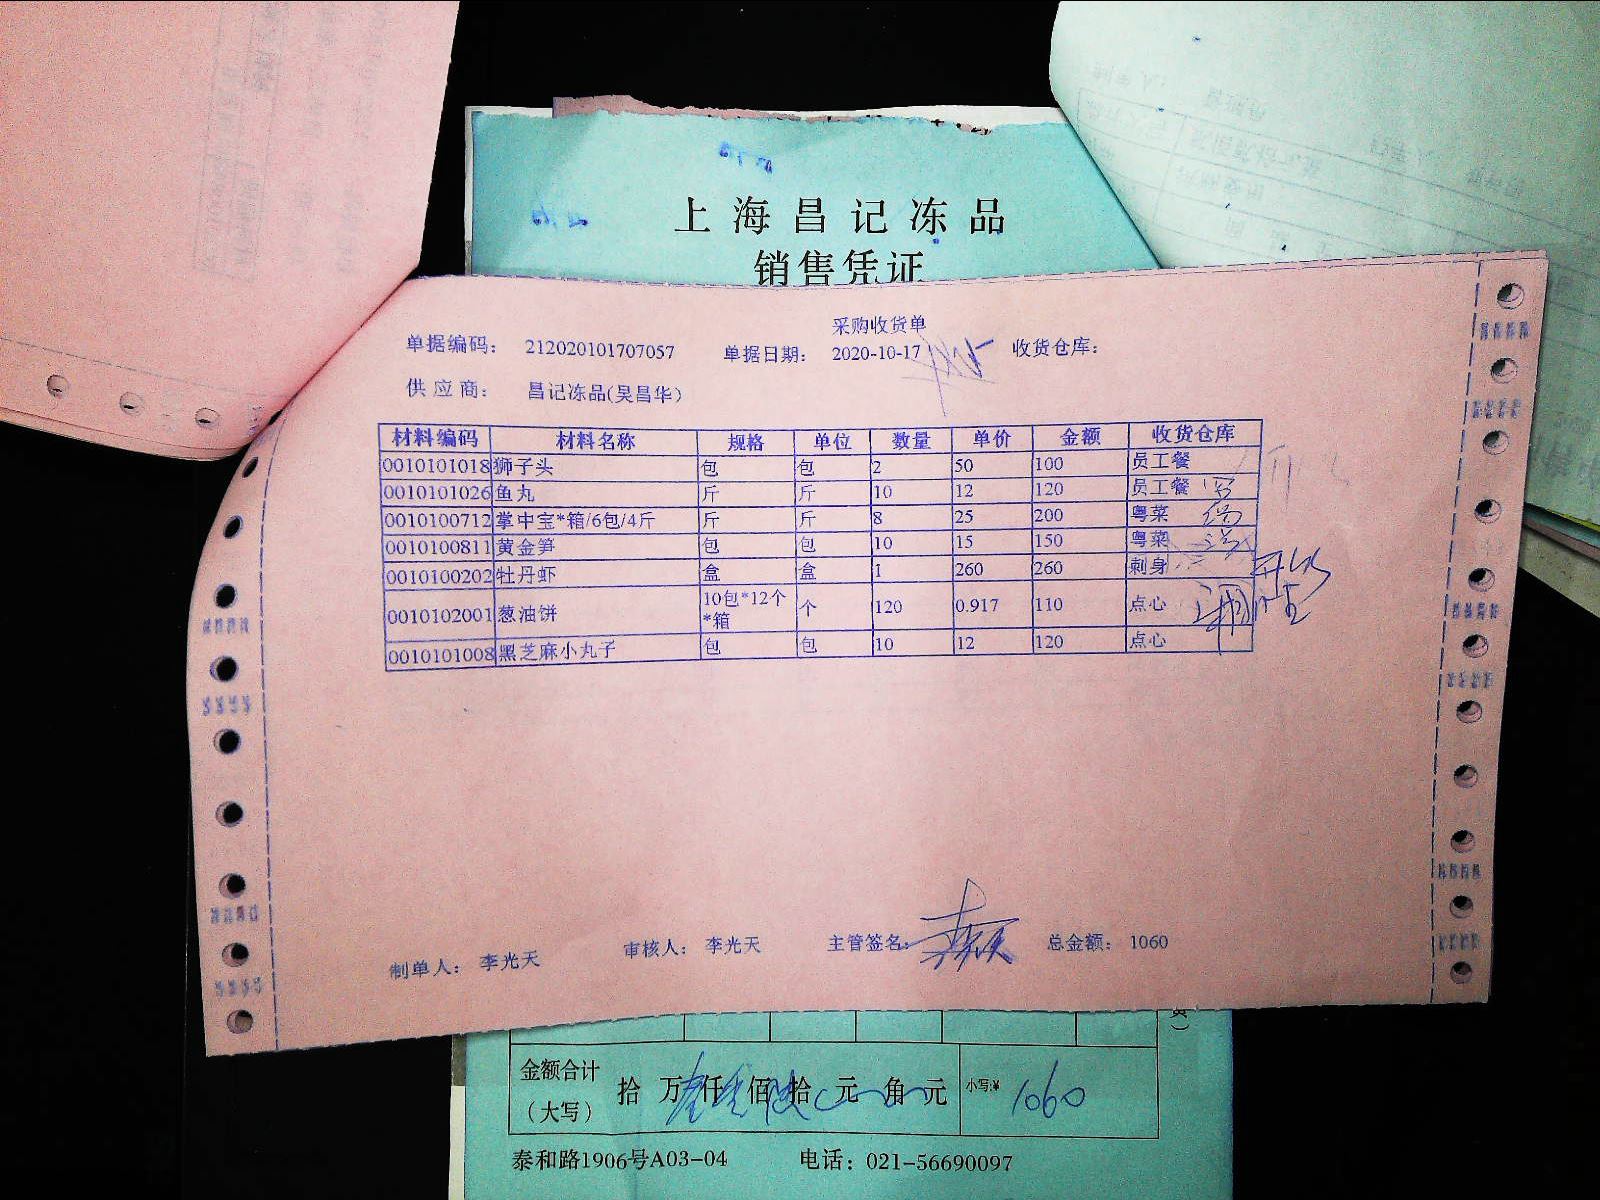 上海昌记冻品
销售凭证
采购收货单
单据编码： 212020101707057 单据日期： 2020-10-17 收货仓库：
供应商： 昌记冻品(吴昌华)
材料编码 材料名称 规格 单位 数量 单价 金额 收货仓库
0010101018 狮子头 包 包 2 50 100 员工餐
0010101026 鱼丸 斤 斤 10 12 120 员工餐
0010100712 掌中宝*箱/6包/4斤 斤 斤 8 25 200 粤菜
0010100811 黄金笋 包 包 10 15 150 粤菜
0010100202 牡丹虾 盒 盒 1 260 260 刺身
0010102001 葱油饼 10包*12个*箱 个 120 0.917 110 点心
0010101008 黑芝麻小丸子 包 包 10 12 120 点心
制单人： 李光天 审核人： 李光天 主管签名： 总金额： 1060
金额合计（大写） 拾 万 仟 佰 拾 元 角 元 小写:¥ 1060
泰和路1906号A03-04 电话：021-56690097